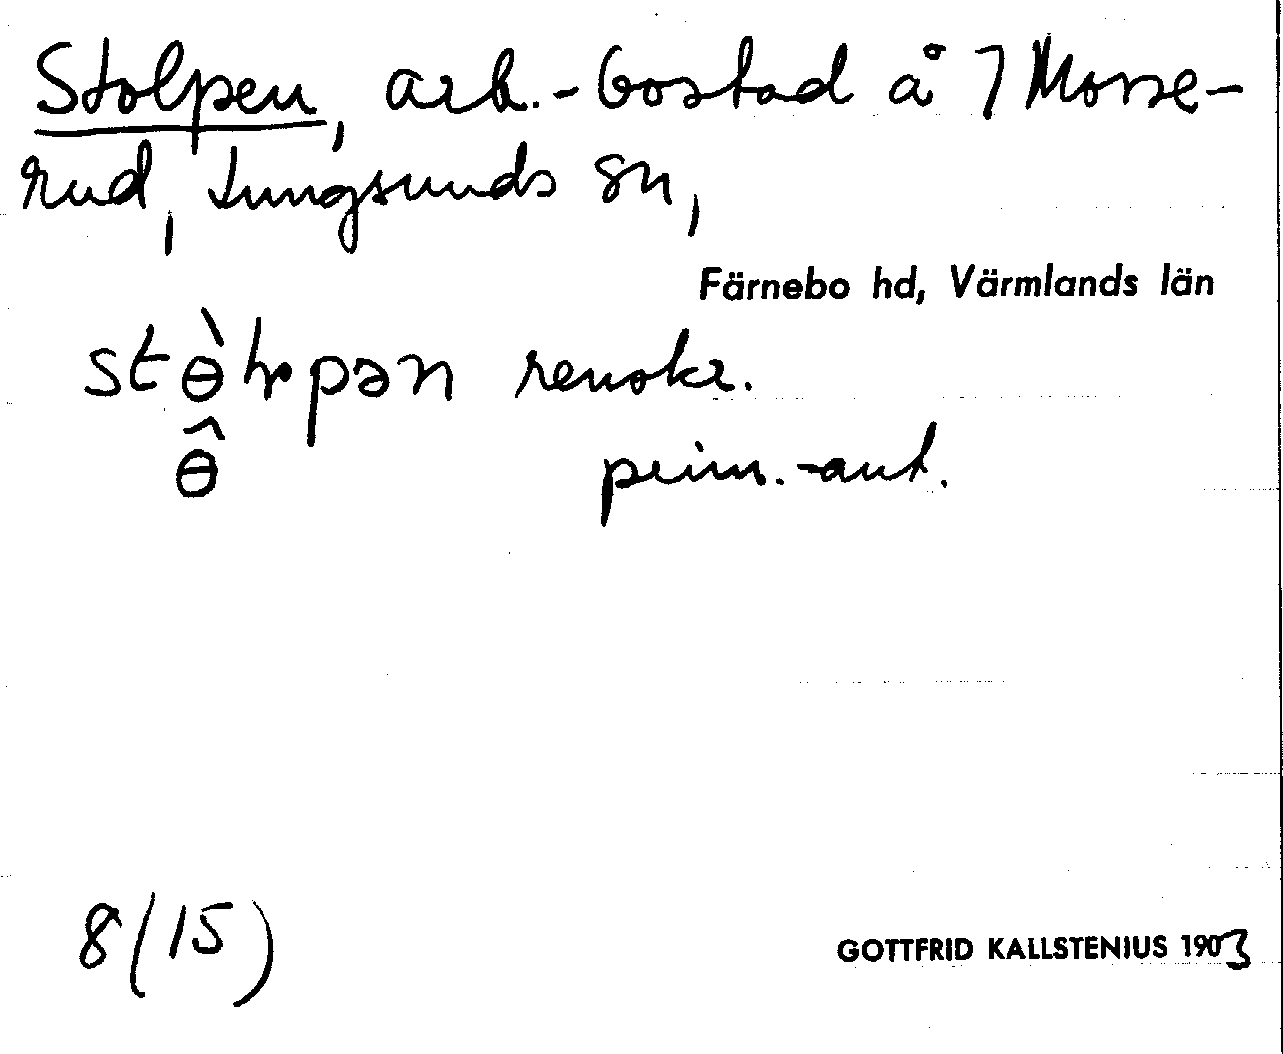 Stolpen, arb.-bostad å 7 Mosse-
rud, Lungsunds sn,
Färnebo hd, Värmlands län
renskr.
ѳ̂ prim.-ant.
8(15)
GOTTFRID KALLSTENIUS 1903